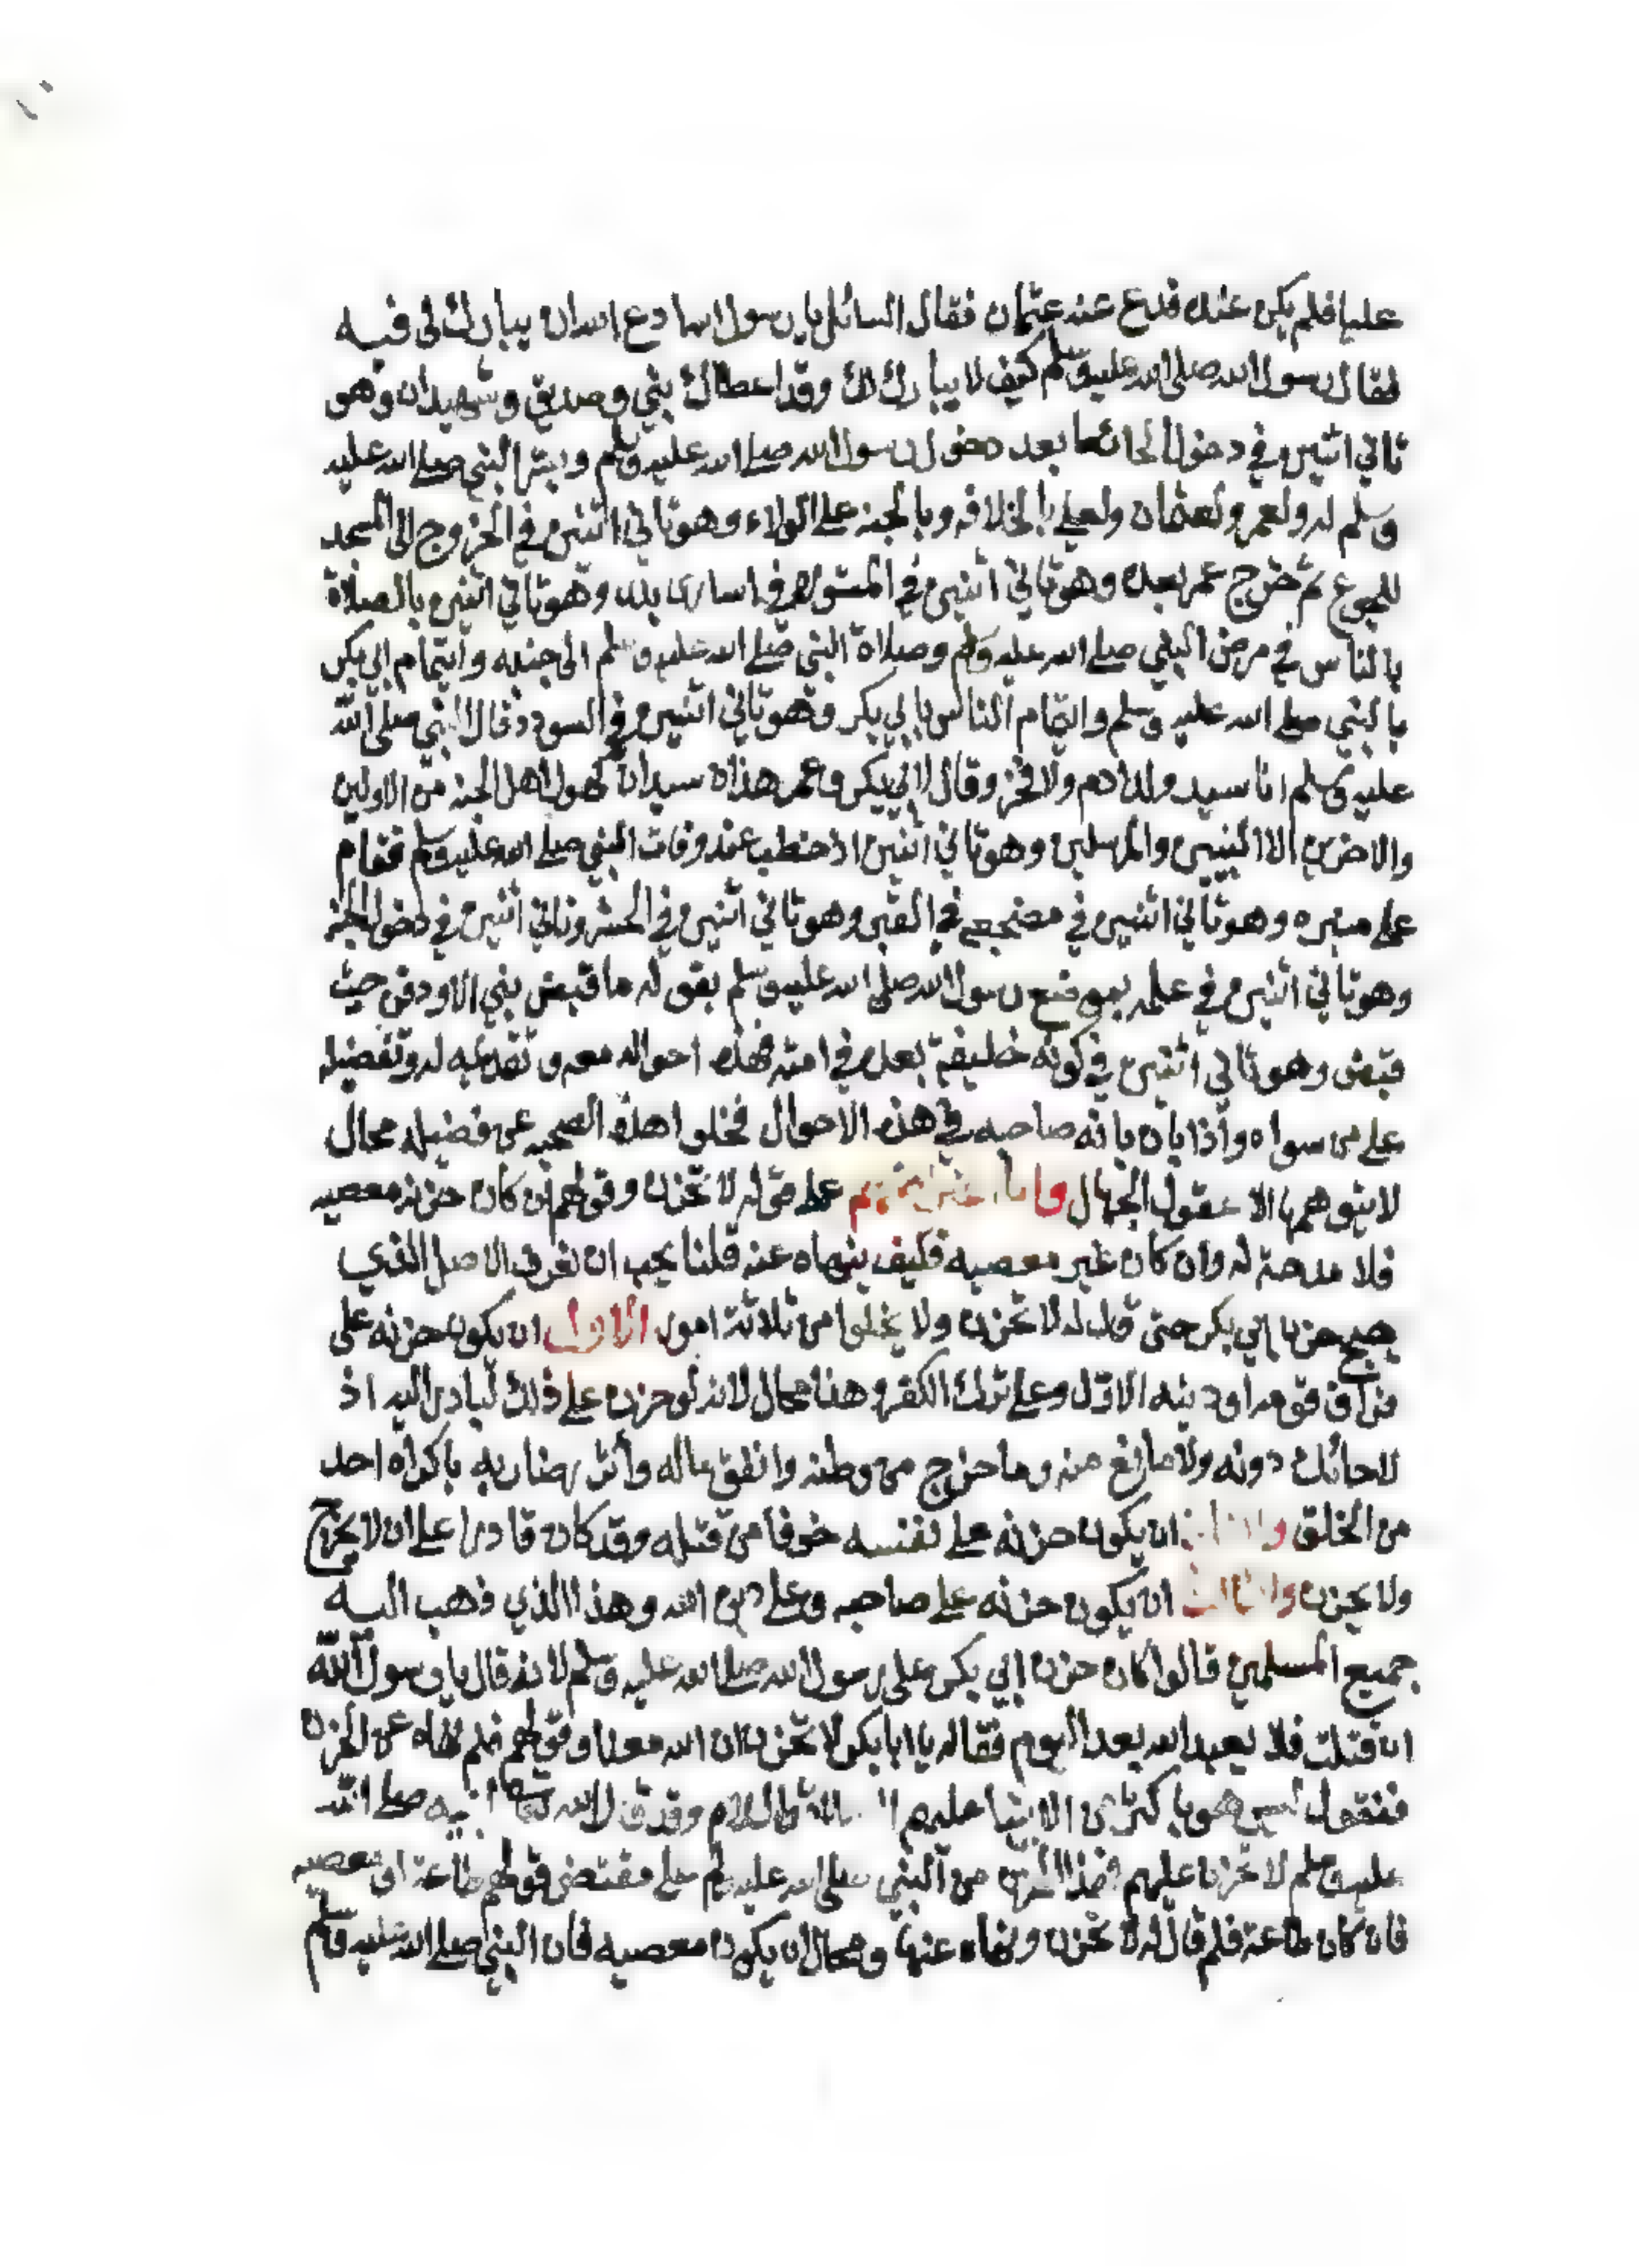 عليا فلم يكن عنده فدع عنه عثمان فقال السائل يا رسول الله ادع الله ان يبارك لى فيه
فقال رسول الله صلى الله عليه وسلم كيف لا يبارك لك وقد اعطاك نبي وصديق وشهيدان وهو
ثاني اثنين في دخول الحائط بعد دخول رسول الله صلى الله عليه وسلم وبشر النبي صلى الله عليه
وسلم له ولعمر ولعثمان ولعلي بالخلافه وبالجنه على الولاء وهو ثاني اثنين في الخروج الى المسجد
للجوع ثم خرج عمر بعده وهو ثاني اثنين في المشوره في اسارى بدر وهو ثاني اثنين بالصلاة
بالناس في مرض النبي صلى الله عليه وسلم وصلاة النبي صلى الله عليه وسلم الى جنبه وائتمام ابي بكر
بالنبي صلى الله عليه وسلم وائتمام الناس بابي بكر وهو ثاني اثنين في السودد فقال النبي صلى الله
عليه وسلم انا سيد ولد ادم ولا فخر وقال لابي بكر وعمر هذان سيدان كهول اهل الجنه من الاولين
والاخرين الا النبيين والمرسلين وهو ثاني اثنين اذ خطب عند وفات النبي صلى الله عليه وسلم فقام
على منبره وهو ثاني اثنين في مضجعه في القبر وهو ثاني اثنين في الحشر وثاني اثنين في دخول الجنه
وهو ثاني اثنين في علمه بموضع رسول الله صلى الله عليه وسلم بقوله ما قبض نبي الا ودفن حيث
قبض وهو ثاني اثنين في كونه خليفة بعده في امته فهذه احواله معه وتقديمه له وتفضيله
على من سواه واذا بان بانه صاحبه في هذه الاحوال فخلوا هذه الصحبه عن فضيله محال
لا يتوهمها الا عقول الجهال واما على قوله لا تحزن وقولهم ان كان حزنه معصيه
فلا مدحة له وان كان غير معصيه فكيف ينهاه عنه قلنا يجب ان نعرف الاصل الذي
حزن ابي بكر حتى قال له لا تحزن ولا يخلوا من ثلاثة امور الاول ان يكون حزنه على
فراق قومه او دينه الاول وعلى ترك الكفر وهذا محال لانه لو حزن على ذلك لبادر اليه اذ
لا حائل دونه ولا مانع منه وما خرج من وطنه وانفق ماله واثر رضا ربه باكراه احد
من الخلق والثاني ان يكون حزنه على نفسه خوفا من قتله وقد كان قادرا على ان لا يخرج
ولا يحزن والثالث ان يكون حزنه على صاحبه وعلى دين الله وهذا الذي ذهب اليه
جميع المسلمين قالوا كان حزن ابي بكر على رسول الله صلى الله عليه وسلم لانه قال يا رسول الله
ان قتلت فلا يعبد الله بعد اليوم فقال له يا ابا بكر لا تحزن ان الله معنا وقولهم فلم نهاه عن الحزن
فنقول ليس هو باكثر من الانبيا عليهم وقد قال الله صلى الله
عليه وسلم لا تحزن عليهم فهذا الحزن من النبي صلى الله عليه وسلم على مقتضى قولهم طاعة او معصيه
فان كان طاعة فلم قال له لا تحزن ونهاه عنها ومحال ان يكون معصيه فان النبي صلى الله عليه وسلم